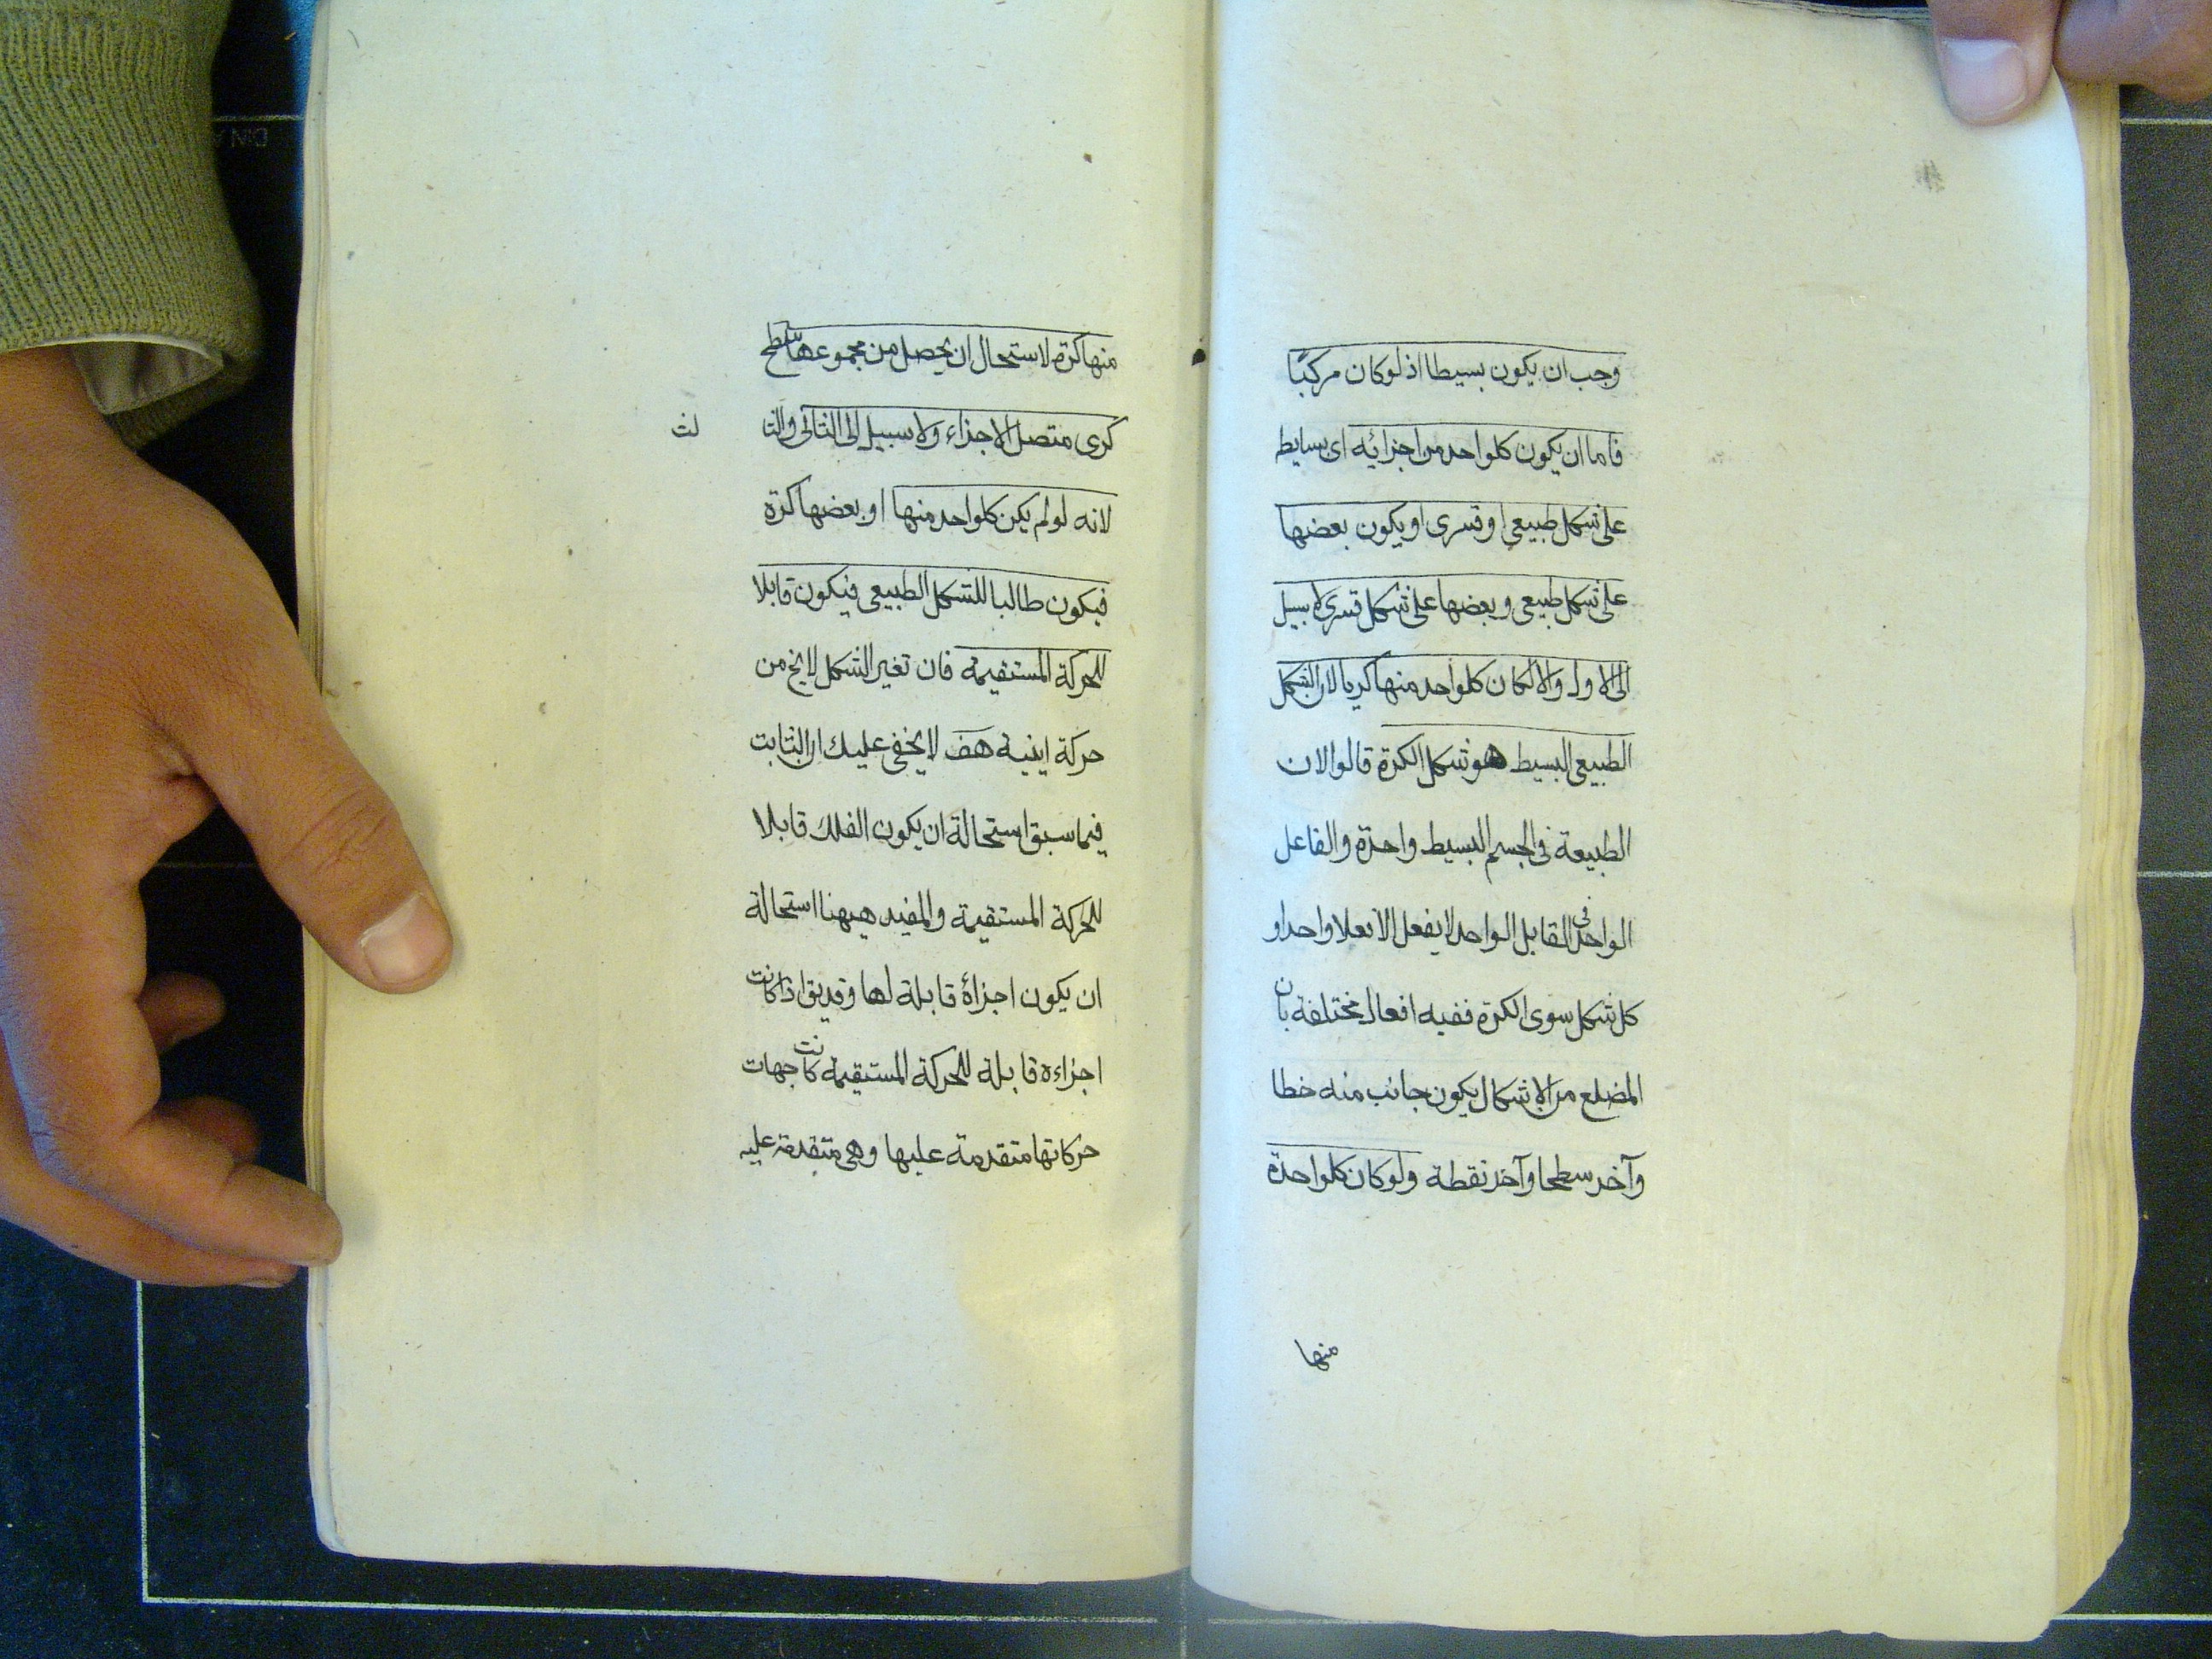 وجب ان يكون بسيطا اذ لو كان مركبًا
فاما ان يكون كلواحد من اجزائه اى بسايط
على شكل طبيعي او قسرى او يكون بعضها
على شكل طبيعى وبعضها على شكل قسرى لا سبيل
الى الاول والا لكان كلواحد منها كريا لان الشكل
الطبيعى للبسيط هو شكل الكرة قالوا لان
الطبيعة فى الجسم البسيط واحدة والفاعل
الواحد فى القابل الواحد لا يفعل الا فعلا واحدا و
كل شكل سوى الكرة ففيه افعال مختلفة بان
المضلع من الاشكال يكون جانب منه خطا
وآخر سطحا وآخر نقطة ولو كان كلواحدة
منها
منها كرة لاستحال ان يحصل من مجموعها سطح
كرى متصل الاجزاء ولا سبيل الى الثانى والثا
لث
لانه لو لم يكن كلواحد منها او بعضها كرة
فيكون طالبا للشكل الطبيعى فيكون قابلا
للحركة المستقيمة فان تغير الشكل لا يخ من
حركة اينية هف لا يخفى عليك ان الثابت
فيما سبق استحالة ان يكون الفلك قابلا
للحركة المستقيمة والمفيد هيهنا استحالة
ان يكون اجزاؤه قابلة لها وقد يق اذا كانت
اجزاءه قابلة للحركة المستقيمة كانت جهات
حركاتها متقدمة عليها وهى متقدمة عليه